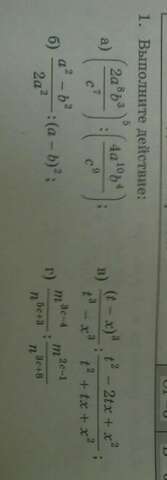 1. Выполните действие:
а) (2a⁸b³/c⁷)⁵ : (4a¹⁰b⁴/c⁹);
в) (t − x)³/(t³ − x³) : (t² − 2tx + x²)/(t² + tx + x²);
б) (a² − b²)/(2a²) : (a − b)²;
г) m³ᶜ⁻⁴/n⁵ᶜ⁺³ : m²ᶜ⁻¹/n³ᶜ⁺⁸